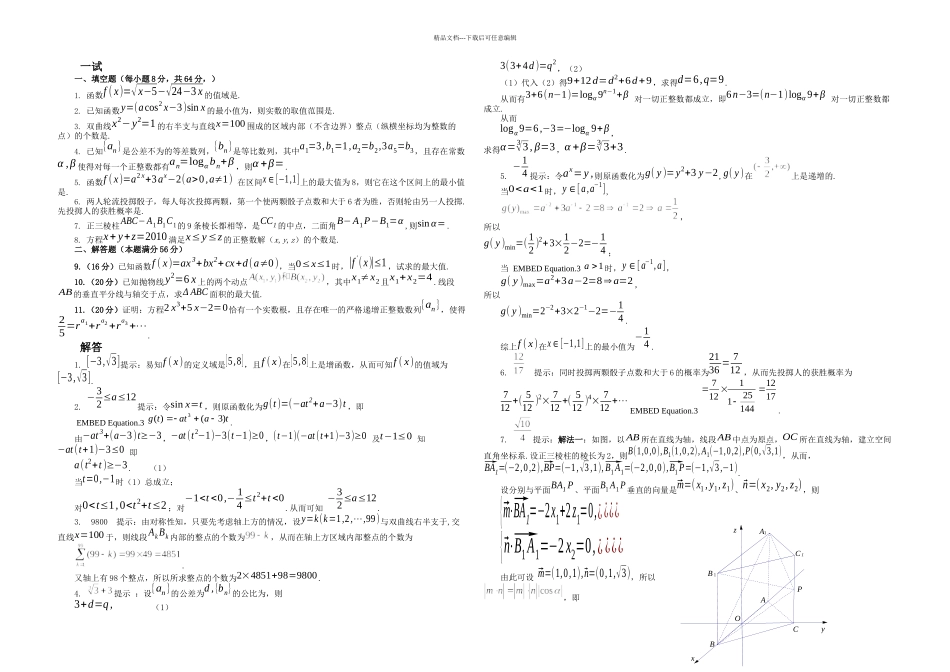 精品文档---下载后可任意编辑
一试
一、填空题（每小题 8 分，共 64 分，）
1. 函数f(x)=√x−5−√24−3x的值域是.
2. 已知函数y=(a cos² x−3)sin x的最小值为，则实数的取值范围是.
3. 双曲线x²−y²=1的右半支与直线x=100围成的区域内部（不含边界）整点（纵横坐标均为整数的
点）的个数是.
4. 已知{aₙ}是公差不为的等差数列，{bₙ}是等比数列，其中a₁=3,b₁=1,a₂=b₂,3a₅=b₃，且存在常数
α,β使得对每一个正整数都有aₙ=log_α bₙ+β，则α+β=.
5. 函数f(x)=a²ˣ+3aˣ−2(a>0,a≠1) 在区间x∈[−1,1]上的最大值为 8，则它在这个区间上的最小值
是.
6. 两人轮流投掷骰子，每人每次投掷两颗，第一个使两颗骰子点数和大于 6 者为胜，否则轮由另一人投掷.
先投掷人的获胜概率是.
7. 正三棱柱ABC−A₁B₁C₁的 9 条棱长都相等，是CC₁的中点，二面角B−A₁P−B₁=α,则sin α=.
8. 方程x+y+z=2010满足x≤y≤z的正整数解（x,y,z）的个数是.
二、解答题（本题满分 56 分）
9.（16 分）已知函数f(x)=ax³+bx²+cx+d(a≠0)，当0≤x≤1时，|f′(x)|≤1，试求的最大值.
10.（20 分）已知抛物线y²=6x上的两个动点A(x₁,y₁)和B(x₂,y₂)，其中x₁≠x₂且x₁+x₂=4.线段
AB的垂直平分线与轴交于点，求ΔABC面积的最大值.
11.（20 分）证明：方程2x³+5x−2=0恰有一个实数根，且存在唯一的严格递增正整数数列{aₙ}，使得
2/5=r^a₁+r^a₂+r^a₃+⋯
.
解答
1. [−3,√3]提示：易知f(x)的定义域是[5,8]，且f(x)在[5,8]上是增函数，从而可知f(x)的值域为
[−3,√3].
2. −3/2≤a≤12 提示：令sin x=t，则原函数化为g(t)=(−at²+a−3)t，即
EMBED Equation.3 g(t)=−at³+(a−3)t.
由−at³+(a−3)t≥−3，−at(t²−1)−3(t−1)≥0，(t−1)(−at(t+1)−3)≥0 及t−1≤0 知
−at(t+1)−3≤0 即
a(t²+t)≥−3. （1）
当t=0,−1时（1）总成立；
对0<t≤1,0<t²+t≤2；对−1<t<0,−1/4≤t²+t<0.从而可知−3/2≤a≤12.
3. 9800 提示：由对称性知，只要先考虑轴上方的情况，设y=k(k=1,2,⋯,99)与双曲线右半支于,交
直线x=100于，则线段AₖBₖ内部的整点的个数为99−k，从而在轴上方区域内部整点的个数为
Σ(99−k)=99×49=4851
.
又轴上有 98 个整点，所以所求整点的个数为2×4851+98=9800.
4. ∛3+3 提示 ：设{aₙ}的公差为d,{bₙ}的公比为，则
3+d=q, （1）
3(3+4d)=q²，（2）
（1）代入（2）得9+12d=d²+6d+9，求得d=6,q=9.
从而有3+6(n−1)=log_α 9ⁿ⁻¹+β 对一切正整数都成立，即6n−3=(n−1)log_α 9+β 对一切正整数都
成立.
从而
log_α 9=6,−3=−log_α 9+β，
求得α=∛3,β=3，α+β=∛3+3.
5. −1/4 提示：令aˣ=y,则原函数化为g(y)=y²+3y−2,g(y)在(−3/2,+∞)上是递增的.
当0<a<1时，y∈[a,a⁻¹]，
g(y)max=a⁻²+3a⁻¹−2=8⇒a⁻¹=2⇒a=1/2
，
所以
g(y)min=(1/2)²+3×1/2−2=−1/4
；
当 EMBED Equation.3 a>1时，y∈[a⁻¹,a]，
g(y)max=a²+3a−2=8⇒a=2，
所以
g(y)min=2⁻²+3×2⁻¹−2=−1/4
.
综上f(x)在x∈[−1,1]上的最小值为−1/4.
6. 12/17 提示：同时投掷两颗骰子点数和大于 6 的概率为21/36=7/12，从而先投掷人的获胜概率为
7/12+(5/12)²×7/12+(5/12)⁴×7/12+⋯ EMBED Equation.3 =7/12×1/(1−25/144)=12/17
.
7. √10/4 提示：解法一：如图，以AB所在直线为轴，线段AB中点为原点，OC所在直线为轴，建立空间
直角坐标系.设正三棱柱的棱长为 2，则B(1,0,0),B₁(1,0,2),A₁(−1,0,2),P(0,√3,1)，从而，
BA₁=(−2,0,2),BP=(−1,√3,1),B₁A₁=(−2,0,0),B₁P=(−1,√3,−1).
设分别与平面BA₁P、平面B₁A₁P垂直的向量是m=(x₁,y₁,z₁)、n=(x₂,y₂,z₂)，则
{m·BA₁=−2x₁+2z₁=0,¿¿¿¿
{n·B₁A₁=−2x₂=0,¿¿¿¿
由此可设 m=(1,0,1),n=(0,1,√3)，所以
|m·n|=|m|·|n||cosα|，即
z
A₁
C₁
B₁
P
A
O
C
y
B
x